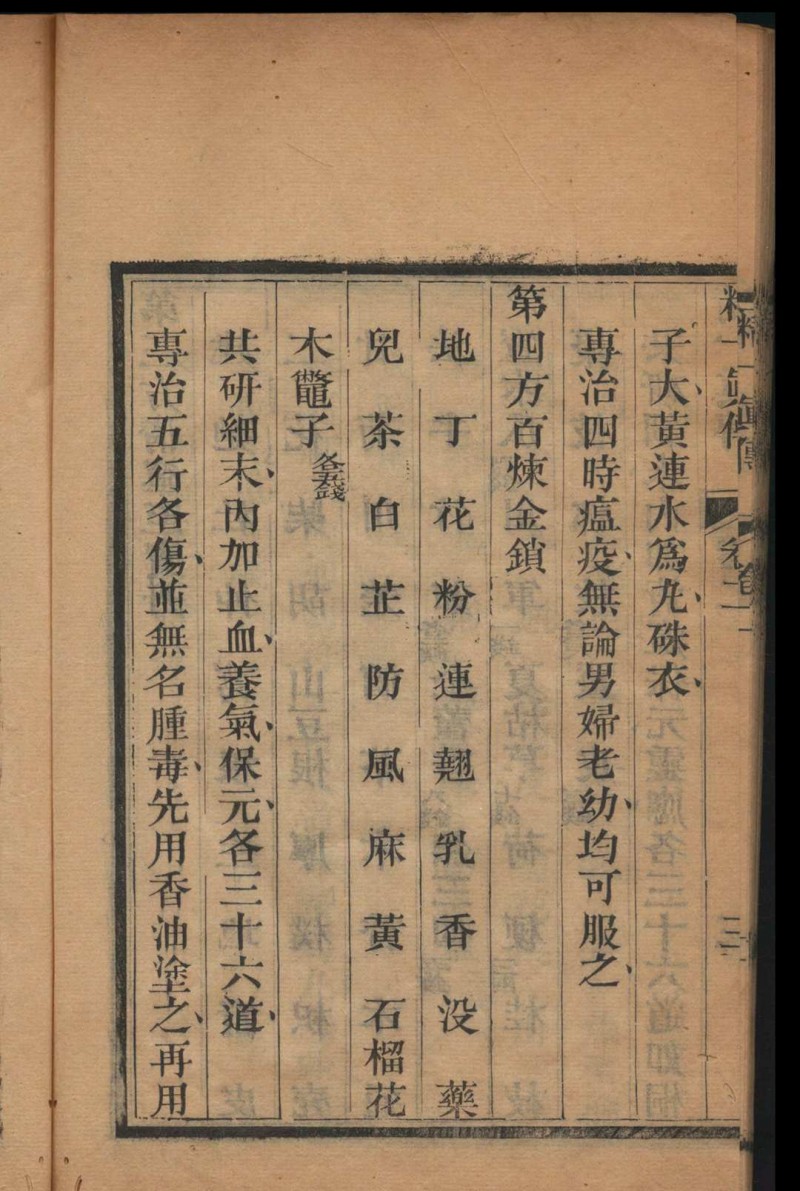 子大、黃連水爲丸、硃衣、
專治四時瘟疫、無論男婦老幼、均可服之、
第四方百煉金鎖
地丁花粉連翹乳香没藥
兒茶白芷防風麻黃石榴花
木鼈子各五錢
共研細末、內加止血、養氣、保元、各三十六道、
專治五行各傷、並無名腫毒、先用香油塗之、再用